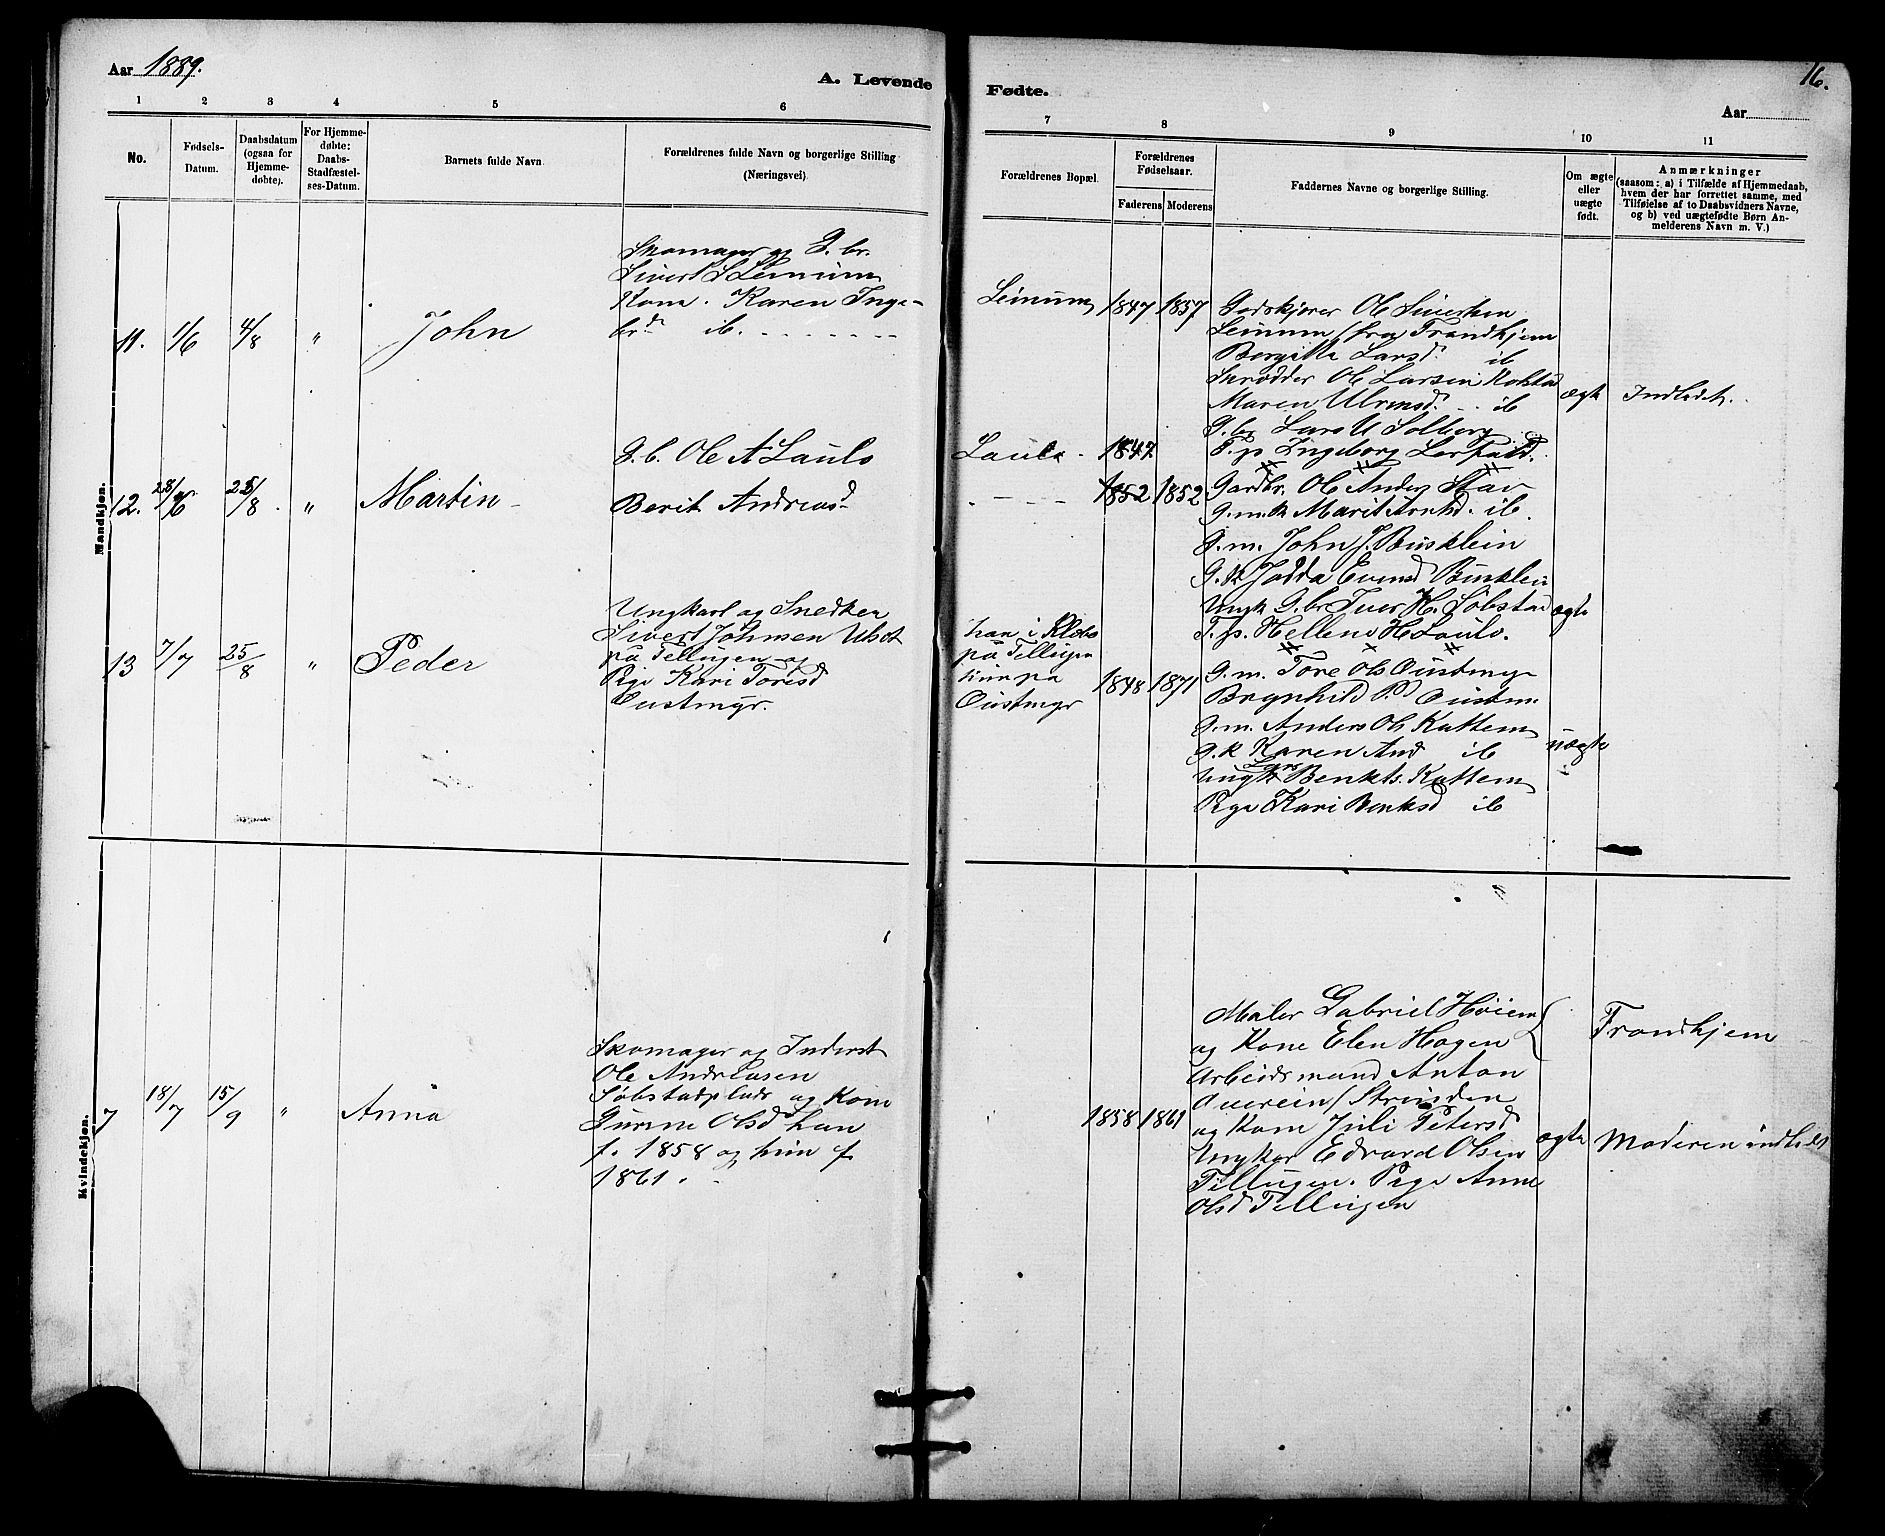 Aar 1889.
A. Levende
Fødte.
16.
Aar
1 2 3 4 5 6
7 8 9 10 11
No.
Fødsels-
Datum.
Daabsdatum
(ogsaa for
Hjemme-
døbte).
For Hjemme-
døbte:
Daabs-
Stadfæstel-
ses-Datum.
Barnets fulde Navn
Forældrenes fulde Navn og borgerlige Stilling
(Næringsvei).
Forældrenes Bopæl.
Forældrenes
Fødselsaar.
Faderens Moderens
Faddernes Navne og borgerlige Stilling.
Om ægte
eller
uægte
født.
Anmærkninger
(saasom: a) i Tilfælde af Hjemmedaab,
hvem der har forrettet samme, med
Tilføielse af to Daabsvidners Navne,
og b) ved uægtefødte Børn An-
melderens Navn m. V.)
Mandkjøn.
11. 1/6 4/8 " John
Skomager og G. br.
Sivert S Leinum
Kone. Karen Inge-
brd ib.
Leinum 1847 1857
Ole Sivertsen
Leinum fra Trondhjem
Larsd. ib
Ole Larsen
Maren ib
G. br Lars U Solberg
T. p Ingeborg
ægte Indledet.
12. 6 25/8 " Martin
G. b. Ole A Laulo
Berit Andreasd
Laulo 1847
1852 1852
Gardbr. Ole Anders Stav
G. m. k Marit ib.
G. m. John J. Busklein
G. k Evensd Busklein
Ungk G. br Iver H. Søbstad
T. p. Hellene H Laulo.
ægte
13 7/7 25/8 " Peder
Ungkarl og Snedker
Sivert Johnsen Ulset
på Tellugen og
Pige Kari Toresd
Oustmyr.
han i Klæbo
på Tellugen
hun på
Oustmyr
1848 1871
G. m. Tore Ols Oustmyr
Brynhild P.d Oustm.
G. m. Anders Ols Kattem
G. k Karen And ib
Ungk Lars Benkts. Kattem
Pige Kari Benksd ib
uægte
Kvindekjøn.
7 18/7 15/9 " Anna
Skomager og Inderst
Ole Andreasen
Søbstadplads og Kone
Gurine Olsd han
f. 1858 og hun f.
1861.
1858 1861
Maler Gabriel Høiem
og Kone Elen Hagen
Arbeidsmand Anton
Strinden
og Kone Juli Petersd
Ungkar Edvard Olsen
Tellugen. Pige Anne
Olsd Tellugen
ægte
Trondhjem
Moderen indledet